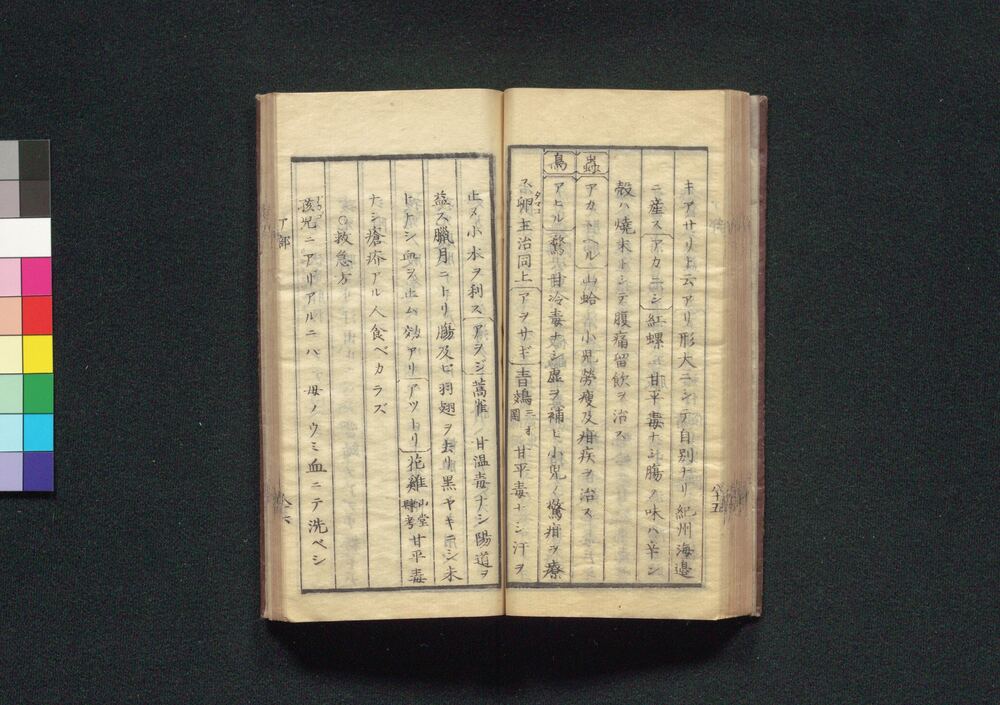 キアサリト云アリ形大ニシテ自別ナリ紀州海邉
ニ産スアカニシ紅螺 甘平毒ナシ腸ノ味ハ辛シ
殻ハ焼末トシテ腹痛留飲ヲ治ス
蟲 アカガヘル 山蛤 小児労痩及疳疾ヲ治ス
鳥 アヒル 鶩 甘冷毒ナシ虚ヲ補ヒ小児ノ驚疳ヲ療
ス卵タマコ主治同上アヲサギ青鷀三才圖 甘平毒ナシ汗ヲ
八十五
止メ小水ヲ利スアヲジ蒿雀 甘温毒ナシ陽道ヲ
益ス臘月ニトリ腸及ヒ羽翅ヲ去リ黒ヤキニシ末
トシ血ヲ止ム効アリアツトリ花雞 甘平毒
ナシ瘡疥アル人食ベカラズ
○救急方
孩児ニアリアルニハ 母ノウミ血ニテ洗ベシ
ア部
八十六